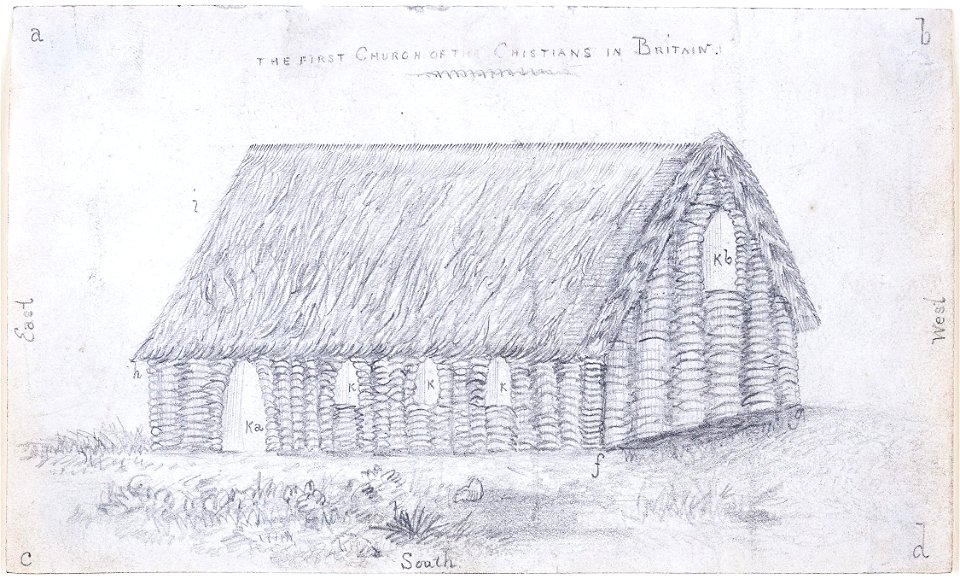 a
b
THE FIRST CHURCH OF THE CHISTIANS IN BRITAIN.
l
Kb
East
West
h
K
K
K
Ka
g
f
South
c
d